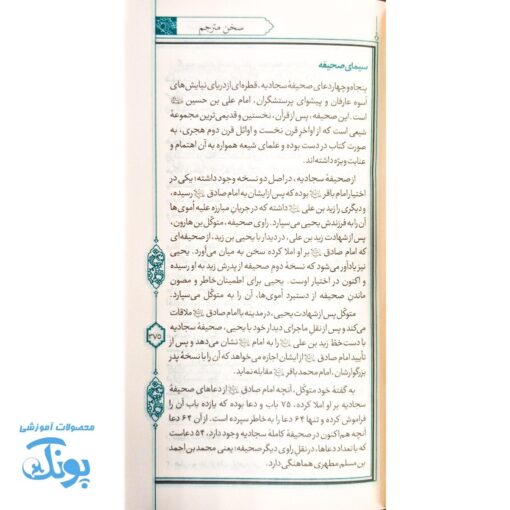 سخن مترجم
سیمای صحیفه
پنجاه و چهار دعای صحیفهٔ سجادیه، قطره‌ای از دریای نیایش‌های
اسوه عارفان و پیشوای پرستشگران، امام علی بن حسین
است. این صحیفه، پس از قرآن، نخستین و قدیمی‌ترین مجموعهٔ
شیعی است که از اواخر قرن نخست و اوائل قرن دوم هجری، به
صورت کتاب در دست بوده و علمای شیعه همواره به آن اهتمام و
عنایت ویژه داشته‌اند.
از صحیفهٔ سجادیه، در اصل دو نسخه وجود داشته؛ یکی در
اختیار امام باقر بوده که پس از ایشان به امام صادق رسیده،
و دیگری را زید بن علی داشته که در جریان مبارزه علیه اموی‌ها
آن را به فرزندش یحیی می‌سپارد. راوی صحیفه، متوکّل بن هارون،
پس از شهادت زید بن علی، در دیدار با یحیی بن زید، از صحیفه‌ای
که امام صادق بر او املا کرده سخن به میان می‌آورد. یحیی
نیز یادآور می‌شود که نسخهٔ دوم صحیفه از پدرش زید به او رسیده
و اکنون در اختیار اوست. یحیی برای اطمینان خاطر و مصون
ماندن صحیفه از دستبرد اموی‌ها، آن را به متوکّل می‌سپارد.
متوکّل پس از شهادت یحیی، در مدینه با امام صادق ملاقات
می‌کند و پس از نقل ماجرای دیدار خود با یحیی، صحیفهٔ سجادیه
با دست‌خطّ زید بن علی را به امام نشان می‌دهد و پس از
تأیید امام صادق از ایشان اجازه می‌خواهد که آن را با نسخهٔ پدر
بزرگوارشان، امام محمد باقر مقابله نماید.
به گفتهٔ خود متوکّل، آنچه امام صادق از دعاهای صحیفهٔ
سجادیه بر او املا کرده، ۷۵ باب و دعا بوده که یازده باب آن را
فراموش کرده و تنها ۶۴ دعا را به خاطر سپرده است. از آن ۶۴ دعا
آنچه هم‌اکنون در صحیفهٔ کاملهٔ سجادیه وجود دارد، ۵۴ دعاست
که با تعداد دعاها، در نقل راوی دیگر صحیفه؛ یعنی محمد بن احمد
بن مسلم مطهری هماهنگی دارد.
۳۷۵
محصولات آموزشی
پونک